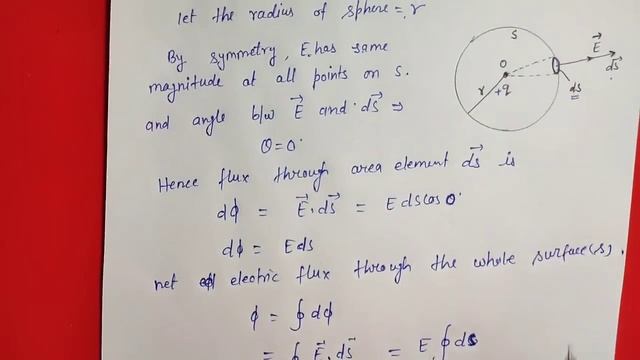 let the radius of sphere = r
By symmetry, E has same
magnitude at all points on s.
and angle b/w E⃗ and ds⃗ ⇒
θ = 0°
Hence flux through area element ds⃗ is
dϕ = E⃗ . ds⃗ = E ds cos 0°
dϕ = E ds
net electric flux through the whole surface(s).
ϕ = ∮ dϕ
= ∮ E⃗ . ds⃗ = E ∮ ds
S
E⃗
ds⃗
O
r
+q
ds